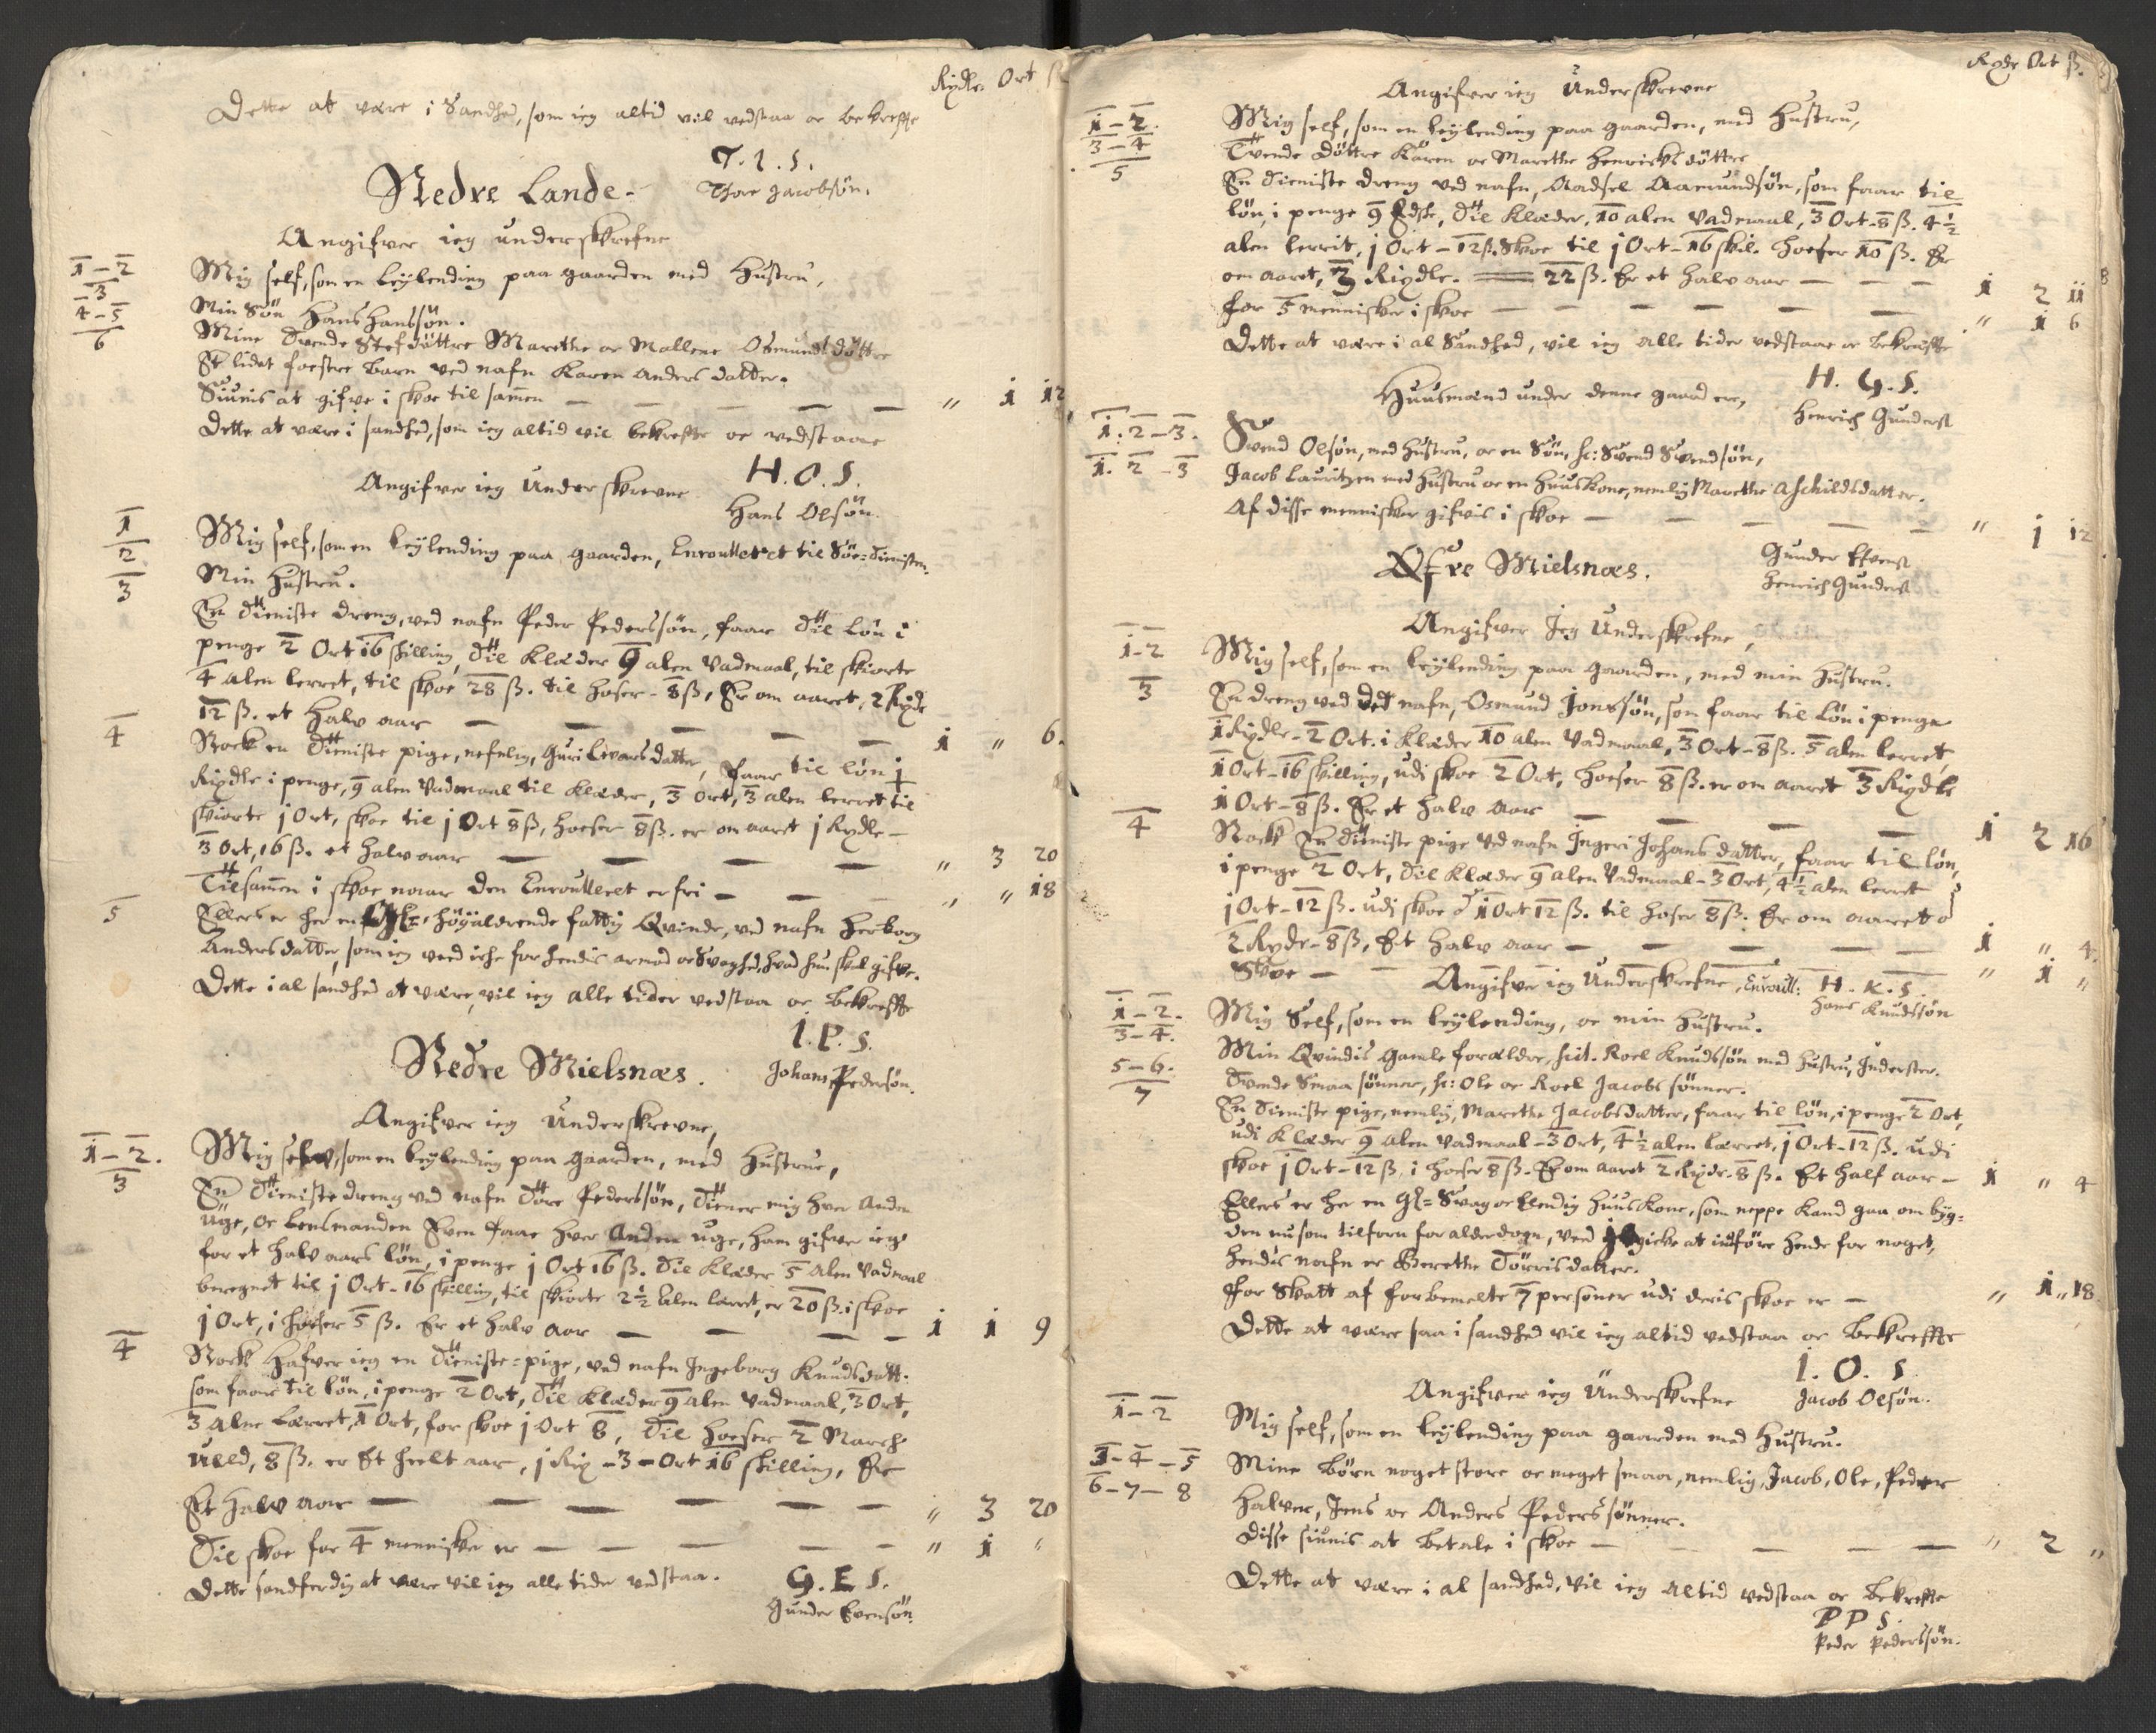 Rixdr. Ort ß
Dette at være i Sandhed, som ieg altid vil vedstaa oc bekrefte
T. I. S.
Nedre Lande-
Thore Jacobsön.
Angifver ieg underskrefne
1 - 2 Mig self, som en leylending paa gaarden med Hustru,
3 Min Sön Hans Hanssön.
4 - 5 Mine Tvende Stefdöttre Marethe oc Mallene Osmundsdöttre
6 Et lidet fostre barn ved nafn Karen Anders datter.
Siunis at gifve i skoe til sammen — — — — — " 1 12
Dette at være i sandhed, som ieg altid vil bekrefte oc vedstaae
H. O. S.
Angifver ieg Underskrevne
Hans Olsön.
1 Mig self, som en leylending paa gaarden, Enroulleret til Söe-Tienisten.
2 Min Hustru.
3 En Tieniste dreng, ved nafn Peder Pederssön, faar Til lön i
penge 2 Ort 16 skilling, Til Klæder 9 alen Vadmaal, til skiorte
4 alen lerret, til skoe 28 ß. til hoser - 8 ß, Er om aaret, 2 Rixdr
12 ß. et halv aar — — — — — 1 " 6.
4 Nock en Tieniste pige, nefnlig, Guri Livarsdatter, faar til lön i
Rixdlr i penge, 9 alen Vadmaal til Klæder, 3 Ort, 3 alen lerret til
skiorte 1 Ort, skoe til 1 Ort 8 ß, hoeser 8 ß. er om aaret 1 Rixdlr -
3 Ort, 16 ß. et halv aar — — — — " 3 20
Tilsamen i skoe naar den Enroulleret er fri - — — " " 18
5 Ellers er her en höyaldrende fattig Qvinde, ved nafn Herborg
Andersdatter, som ieg veed iche for hendis armod oc Svaghed, hvad hun skal gifve.
Dette i al sandhed at være, vil ieg alle tider vedstaa oc bekrefte
I. P. S.
Nedre Mielsnæs.
Johans Pedersön.
Angifver ieg Underskrevne,
1 - 2. Mig selv, som en leylending paa gaarden, med Hustrue,
3 En Tieniste dreng ved nafn Tore Pederssön, Tiener mig hver anden
Uge, oc lensmanden Even faae hver anden uge, ham gifver ieg
for et halv aars lön, i penge 1 Ort 16 ß. Til Klæder 5 alen Vadmaal
beregnet til 1 Ort - 16 skilling, til skiorte 2 1/2 alen lærret, er 20 ß. i skoe
1 Ort, i hoeser 5 ß. Er et halv aar — — — - 1 1 9
4 Nock hafver ieg en Tieniste-pige, ved nafn Ingeborg Knudsdatt:
som faar til lön, i penge 2 Ort, Til Klæder 9 alen Vadmaal, 3 Ort,
3 alne Lærret, 1 Ort, for skoe 1 Ort 8, Til hoeser 2 March
Ulld, 8 ß. er Et heelt aar, 1 Rix - 3 - Ort 16 skilling, Er
Et halv aar — — — — — — " 3 20
Til skoe for 4 mennisker er — — — — — " 1 "
Dette sandferdig at være vil ieg alle tider vedstaa.
G. E. S.
Gunder Evensön.
Rixdr Ort ß.
8
Angifver ieg Underskrevne
1 - 2. Mig self, som en leylending paa gaarden, med Hustru,
3 - 4 Tvende döttre Karen oc Marethe Henrichsdöttre
5 En Tieniste dreng ved nafn, Aadsel Aamundsön, som faar til
lön, i penge 9 , Til Klæder, 10 alen Vadmaal, 3 Ort - 8 ß. 4 1/2
alen lerrit, 1 Ort - 12 ß. Skoe til 1 Ort - 16 skil. hoeser 10 ß. Er
om aaret, 3 Rixdlr. — 22 ß. Er et halv aar — — — 1 2 11
for 5 mennisker i skoe — — — — — — " 1 6
Dette at være i al Sandhed, vil ieg alle tider vedstaae oc bekrefte
H. G. S.
Huusmænd under denne gaard ere,
Henrich Gunders:
1. 2 - 3. Svend Olsön, med Hustru, oc en Sön, sc: Svend Svendsön,
1. 2 - 3 Jacob Lauritzen med Hustru oc en Huuskone, nemlig Marethe Aschildsdatter.
Af disse mennisker gifvis i skoe — — — — — " 1 12
Gunder Efvens:
Öfre Mielsnæs.
Henrich Gunders:
Angifver Jeg Underskrefne,
1 - 2 Mig self, som en leylending paa gaarden, med min Hustru.
3 En dreng ved nafn, Osmund Jonssön, som faar til lön i penge
1 Rixdlr - 2 Ort. i Klæder 10 alen Vadmaal, 3 Ort - 8 ß. 5 alen lerret,
1 Ort - 16 skilling, udi skoe 2 Ort, hoeser 8 ß. er om aaret 3 Rixdlr
1 Ort - 8 ß. Er et halv aar — — — — 1 2 16
4 Nock En Tieniste pige ved nafn Ingeri Johansdatter, faar til lön,
i penge 2 Ort, Til Klæder 9 alen Vadmaal - 3 Ort, 4 1/2 alen lerret
1 Ort - 12 ß. udi skoe 1 Ort 12 ß. til hoser 8 ß. Er om aaret
2 Rixdr - 8 ß, Et halv aar — — — — — 1 " 4.
Skoe — — — " 1 "
Angifver ieg Underskrefne, Enroull: H. K. S.
Hans Knudssön
1 - 2. Mig Self, som en leylending, oc min Hustru.
3 - 4. Min Qvindis gamle forældre, scil. Roel Knudssön med Hustru, Inderster.
5 - 6. Tvende Smaa sönner, sc: Ole oc Roel Jacobs sönner.
7 En Tieniste pige, nemlig, Marethe Jacobsdatter, faar til lön, i penge 2 Ort,
udi Klæder 9 alen Vadmaal - 3 Ort, 4 1/2 alen lærret, 1 Ort - 12 ß. udi
skoe 1 Ort - 12 ß, i hoeser 8 ß. Er om aaret 2 Rixdr. 8 ß. Et half aar - 1 " 4
Ellers er her en Gl: Svag oc Elendig Huuskone, som neppe kand gaa om byg-
den nu som tilforn for alderdogn, veed iche at indföre hende for noget,
hendis nafn er Berethe Törrisdatter.
For Skatt af forbemelte 7 personer udi deris skoe er — " 1 " 18
Dette at være saa i sandhed vil ieg altid vedstaa oc bekrefte
I. O. S
Angifver ieg Underskrefne
Jacob Olsön.
1 - 2 Mig self, som en leylending paa gaarden med Hustru.
3 - 4 - 5 Mine börn noget store oc meget smaa, nemlig, Jacob, Ole, Peder
6 - 7 - 8 Halver, Jens oc Anders Peders sönner.
Disse siunis at betale i skoe — — — — " 2 "
Dette at være i al sandhed, vil ieg altid vedstaa oc bekrefte
P P S
Peder Pederssön.